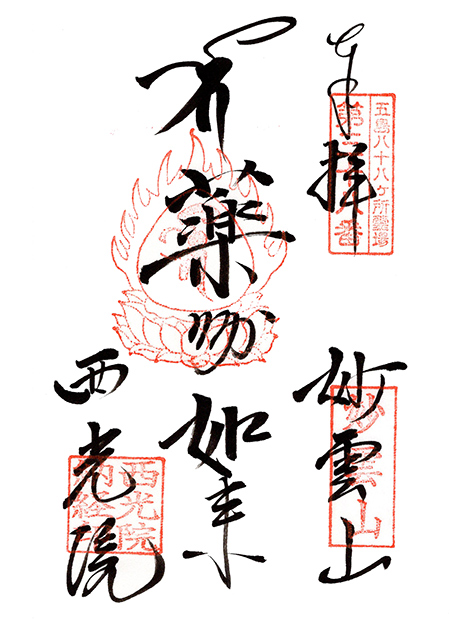 奉拝
五島八十八ケ所霊場
妙雲山
妙雲山
薬師如来
西光院
西光院